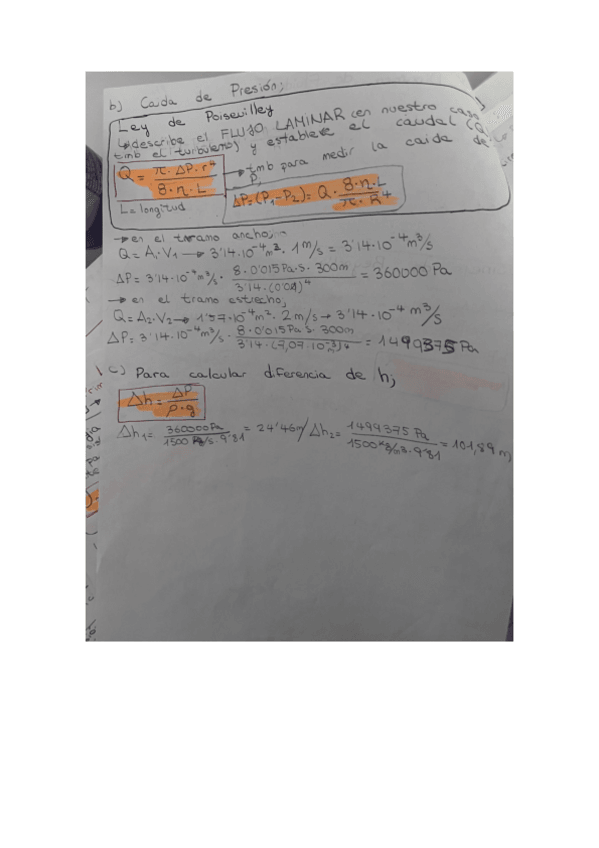 b) Caida de Presión;
Ley de Poiseuilley
↳ describe el FLUJO LAMINAR (en nuestro caso
tmb el turbulento) y establece el caudal (Q)
Q = π · ΔP · r⁴ / 8 · η · L
→ tmb para medir la caida de
P,
ΔP = (P₁ - P₂) = Q · 8 · η · L / π · R⁴
L = longitud
→ en el tramo ancho,
Q = A₁ · V₁ → 3'14 · 10⁻⁴ m² · 1 m/s = 3'14 · 10⁻⁴ m³/s
ΔP = 3'14 · 10⁻⁴ m³/s · 8 · 0'015 Pa·s · 300m / 3'14 · (0'01)⁴ = 360000 Pa
→ en el tramo estrecho,
Q = A₂ · V₂ → 1'57 · 10⁻⁴ m² · 2 m/s → 3'14 · 10⁻⁴ m³/s
ΔP = 3'14 · 10⁻⁴ m³/s · 8 · 0'015 Pa·s · 300m / 3'14 · (7,07 · 10⁻³)⁴ = 1499375 Pa
c) Para calcular diferencia de h;
Δh = ΔP / ρ · g
Δh₁ = 360000 Pa / 1500 · 9'81 = 24'46m / Δh₂ = 1499375 Pa / 1500 kg/m3 · 9'81 = 101,89 m